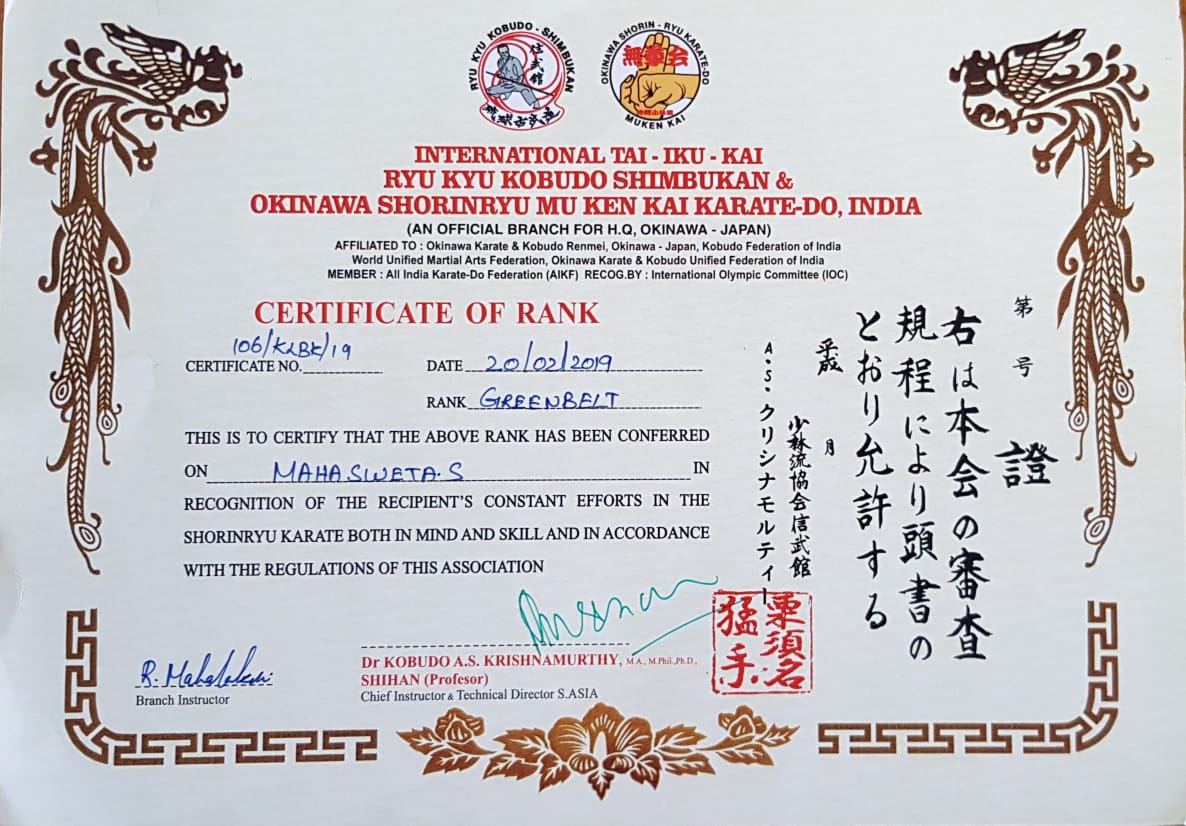 RYU KYU KOBUDO - SHIMBUKAN
信武館
琉球古武道
OKINAWA SHORIN - RYU KARATE-DO
無拳会
MUKEN KAI
INTERNATIONAL TAI - IKU - KAI
RYU KYU KOBUDO SHIMBUKAN &
OKINAWA SHORINRYU MU KEN KAI KARATE-DO, INDIA
(AN OFFICIAL BRANCH FOR H.Q, OKINAWA - JAPAN)
AFFILIATED TO : Okinawa Karate & Kobudo Renmei, Okinawa - Japan, Kobudo Federation of India
World Unified Martial Arts Federation, Okinawa Karate & Kobudo Unified Federation of India
MEMBER : All India Karate-Do Federation (AIKF) RECOG.BY : International Olympic Committee (IOC)
CERTIFICATE OF RANK
CERTIFICATE NO. 106/KLBK/19
DATE 20/02/2019
RANK GREENBELT
THIS IS TO CERTIFY THAT THE ABOVE RANK HAS BEEN CONFERRED
ON MAHASWETA.S IN
RECOGNITION OF THE RECIPIENT'S CONSTANT EFFORTS IN THE
SHORINRYU KARATE BOTH IN MIND AND SKILL AND IN ACCORDANCE
WITH THE REGULATIONS OF THIS ASSOCIATION
R. Mahalakshmi
Branch Instructor
Dr KOBUDO A.S. KRISHNAMURTHY, M.A., M.Phil.,Ph.D.,
SHIHAN (Profesor)
Chief Instructor & Technical Director S.ASIA
第 号
證
右は本会の審査
規程により頭書の
とおり允許する
平成 月
少林流協会信武館
A.S.クリシナモルティー
栗須名
猛手